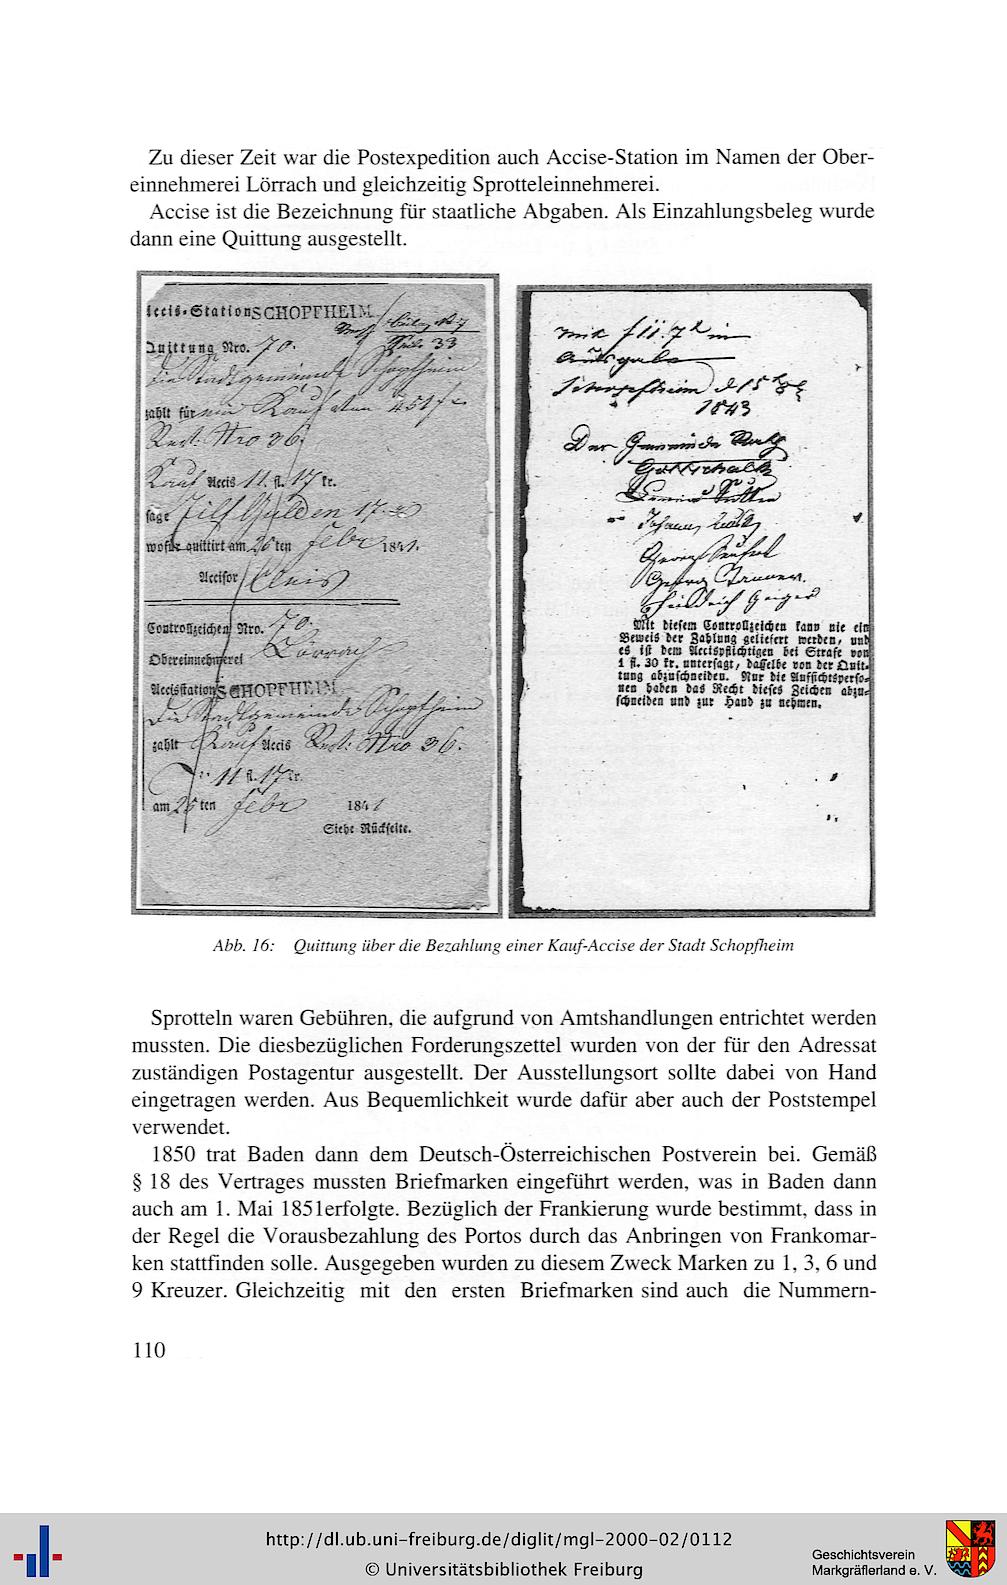 Zu dieser Zeit war die Postexpedition auch Accise-Station im Namen der Ober-
einnehmerei Lörrach und gleichzeitig Sprotteleinnehmerei.
Accise ist die Bezeichnung für staatliche Abgaben. Als Einzahlungsbeleg wurde
dann eine Quittung ausgestellt.
Accis-Station SCHOPFHEIM
Quittung Nro. 70.
Die Stadtgemeinde Schopfheim
zahlt für
Nro 36.
Kauf Accis 11. fl. 17 kr.
sage Eilf Gulden 17
wofür quittirt am 26 ten Febr 1841.
Accisor
Controllzeichen Nro. 70.
Obereinnehmerei Lörrach
Accisstation SCHOPFHEIM
Die Stadtgemeinde Schopfheim
zahlt Kauf Accis Nro 36.
11 fl. 17 kr.
am 26 ten Febr 1841
Siehe Rückseite.
in
Ausgabe
Schopfheim
1843
Der Gemeinde Rath
Gottschalk
Johann
Georg
Georg
Friedrich Geiger
Mit diesem Controllzeichen kann nie ein
Beweis der Zahlung geliefert werden, und
es ist dem Accispflichtigen bei Strafe von
1 fl. 30 kr. untersagt, dasselbe von der Quit-
tung abzuschneiden. Nur die Aufsichtsperso-
nen haben das Recht dieses Zeichen abzu-
schneiden und zur Hand zu nehmen.
Abb. 16: Quittung über die Bezahlung einer Kauf-Accise der Stadt Schopfheim
Sprotteln waren Gebühren, die aufgrund von Amtshandlungen entrichtet werden
mussten. Die diesbezüglichen Forderungszettel wurden von der für den Adressat
zuständigen Postagentur ausgestellt. Der Ausstellungsort sollte dabei von Hand
eingetragen werden. Aus Bequemlichkeit wurde dafür aber auch der Poststempel
verwendet.
1850 trat Baden dann dem Deutsch-Österreichischen Postverein bei. Gemäß
§ 18 des Vertrages mussten Briefmarken eingeführt werden, was in Baden dann
auch am 1. Mai 1851erfolgte. Bezüglich der Frankierung wurde bestimmt, dass in
der Regel die Vorausbezahlung des Portos durch das Anbringen von Frankomar-
ken stattfinden solle. Ausgegeben wurden zu diesem Zweck Marken zu 1, 3, 6 und
9 Kreuzer. Gleichzeitig mit den ersten Briefmarken sind auch die Nummern-
110
http://dl.ub.uni-freiburg.de/diglit/mgl-2000-02/0112
© Universitätsbibliothek Freiburg
Geschichtsverein
Markgräflerland e. V.